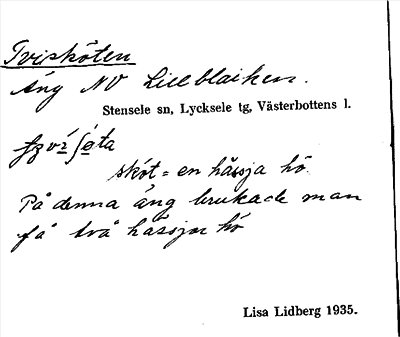 Tvisköten
Äng NV Lillblaiken.
Stensele sn, Lycksele tg, Västerbottens l.
sköt = en hässja hö
På denna äng brukade man
få två hässjor hö
Lisa Lidberg 1935.